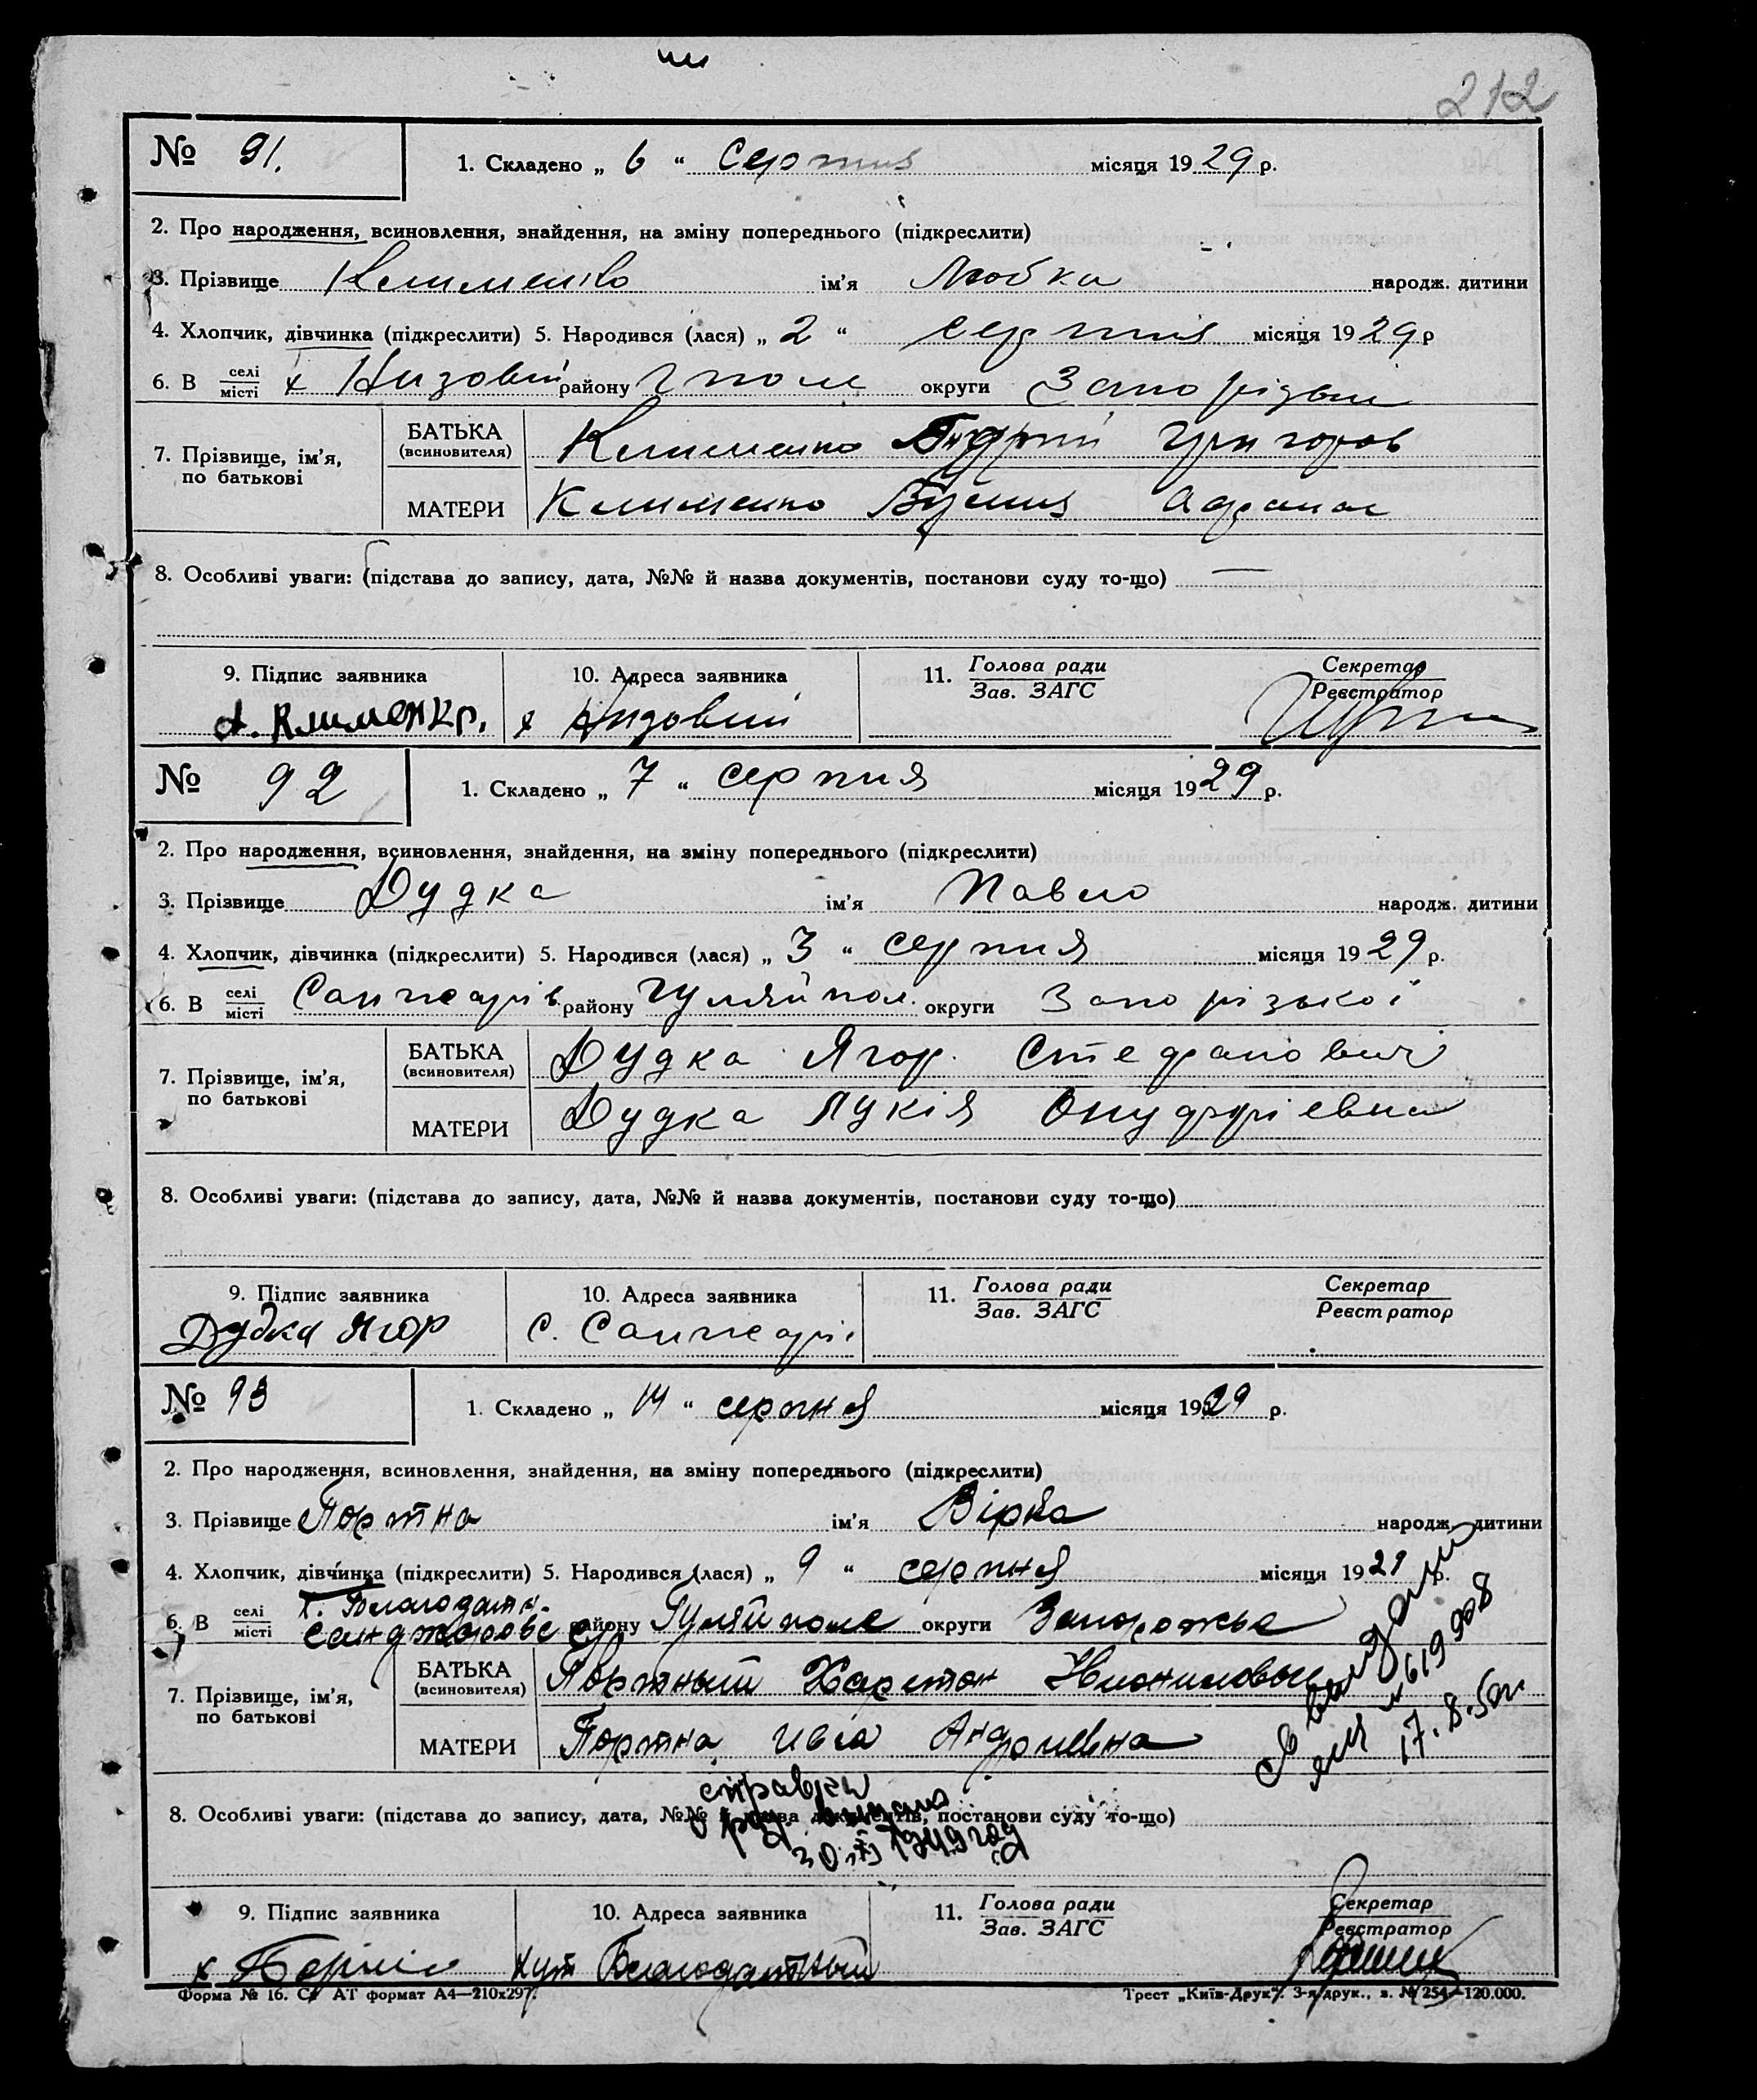 212
№ 91.
1. Складено „ 6 “ Серпня місяця 1929 р.
2. Про народження, всиновлення, знайдення, на зміну попереднього (підкреслити)
3. Прізвище Клименко ім’я Любка народж. дитини
4. Хлопчик, дівчинка (підкреслити) 5. Народився (лася) „ 2 “ серпня місяця 1929 р
6. В селі місті х Низовий району Гполе округи Запорізької
7. Прізвище, ім’я, по батькові
БАТЬКА (всиновителя) Клименко Андрій Григоров
МАТЕРИ Клименко Афанас
8. Особливі уваги: (підстава до запису, дата, №№ й назва документів, постанови суду то-що) —
9. Підпис заявника 10. Адреса заявника 11. Голова ради Зав. ЗАГС Секретар Реєстратор
А. Клименко. х Низовий
№ 92
1. Складено „ 7 “ серпня місяця 1929 р.
2. Про народження, всиновлення, знайдення, на зміну попереднього (підкреслити)
3. Прізвище Дудка ім’я Павло народж. дитини
4. Хлопчик, дівчинка (підкреслити) 5. Народився (лася) „ 3 “ серпня місяця 1929 р.
6. В селі місті Санжарів. району Гуляйпол. округи Запорізької
7. Прізвище, ім’я, по батькові
БАТЬКА (всиновителя) Дудка Ягор. Стефанович
МАТЕРИ Дудка Лукія Онуфріевна
8. Особливі уваги: (підстава до запису, дата, №№ й назва документів, постанови суду то-що)
9. Підпис заявника 10. Адреса заявника 11. Голова ради Зав. ЗАГС Секретар Реєстратор
Дудка Ягор С. Санжарі
№ 93
1. Складено „ 14 “ серпня місяця 1929 р.
2. Про народження, всиновлення, знайдення, на зміну попереднього (підкреслити)
3. Прізвище Портна ім’я Вірка народж. дитини
4. Хлопчик, дівчинка (підкреслити) 5. Народився (лася) „ 9 “ серпня місяця 1929 р.
х. Благодатн.
6. В селі місті району Гуляйполе округи Запорожье
7. Прізвище, ім’я, по батькові
БАТЬКА (всиновителя) Портный Харитон
МАТЕРИ Портна Ивга Андреевна
№ 619908
17.8.50г.
справка
видана
8. Особливі уваги: (підстава до запису, дата, №№ й назва документів, постанови суду то-що)
9. Підпис заявника 10. Адреса заявника 11. Голова ради Зав. ЗАГС Секретар Реєстратор
хут Благодатный
Форма № 16. Ст АТ формат А4—210х297.
Трест „Київ-Друк“. 3-я друк., з. № 254—120.000.